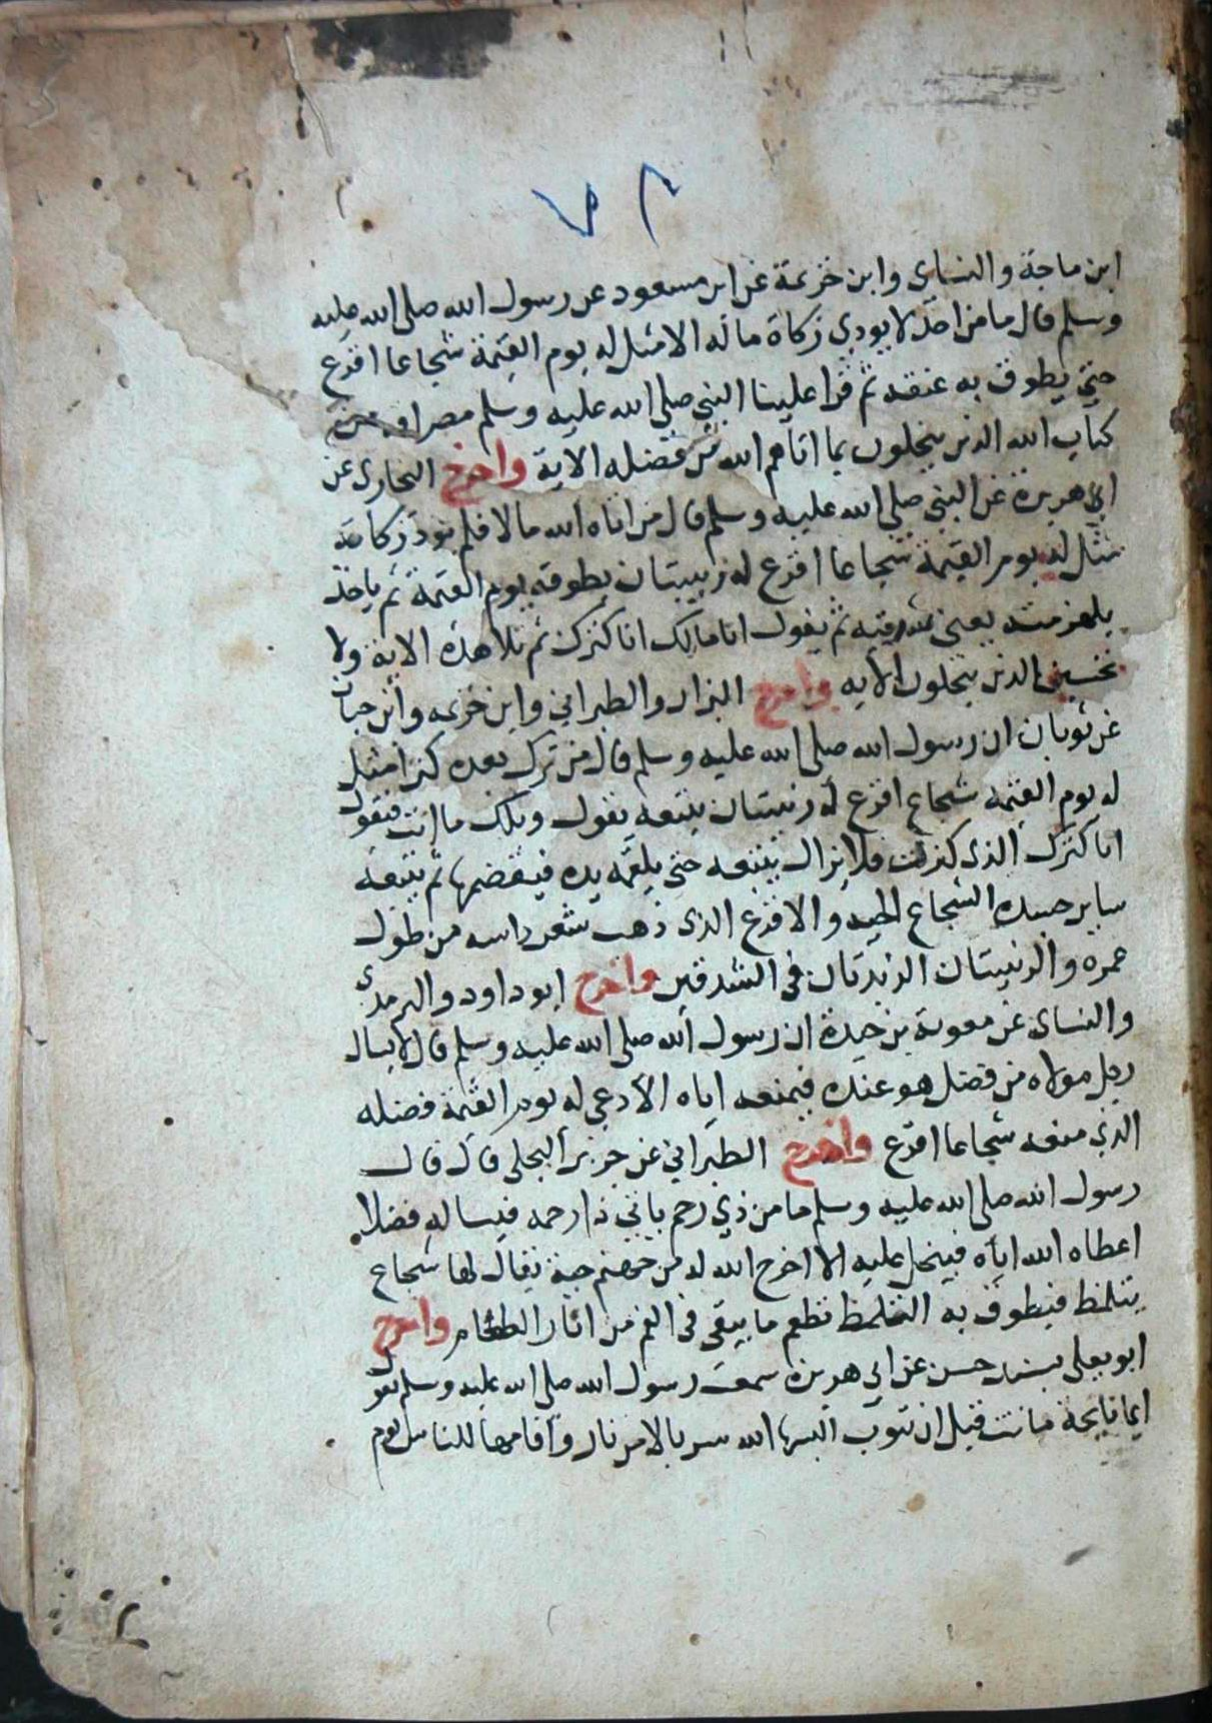 ٧٢
ابن ماجة والنساى وابن خزيمة عن ابن مسعود عن رسول الله صلى الله عليه
وسلم قال ما من احد لا يودي زكاة ماله الا مثل له يوم القيمة شجاعا اقرع
حتى يطوق به عنقه ثم قرا علينا النبي صلى الله عليه وسلم مصداقه من
كتاب الله الذين يبخلون بما اتاهم الله من فضله الاية واخرج البخارى عن
ابي هريرة عن النبي صلى الله عليه وسلم قال من اتاه الله مالا فلم يود زكاته
مثل له يوم القيمة شجاعا اقرع له زبيبتان يطوقه يوم القيمة ثم ياخذ
بلهزمته يعنى شدقيه ثم يقول انا مالك انا كنزك ثم تلا هذه الاية ولا
تحسبن الذين يبخلون الايه واخرج البزار والطبراني وابن خزيمه وابن حبان
عن ثوبان ان رسول الله صلى الله عليه وسلم قال من ترك بعده كنزا مثل
له يوم القيمه شجاع اقرع له زبيبتان يتبعه يقول ويلك ما انت فيقول
انا كنزك الذى كنزت فلا يزال يتبعه حتى يلقمه يده فيقضمها ثم يتبعه
ساير جسده الشجاع الحيه والاقرع الذى ذهب شعر راسه من طول
عمره والزبيبتان الزبدتان فى الشدقين واخرج ابو داود والترمذي
والنساى عن معوية بن حيدة ان رسول الله صلى الله عليه وسلم قال لا يسال
رجل مولاه من فضل هو عنده فيمنعه اياه الا دعي له يوم القيمة فضله
الذي منعه شجاعا اقرع واخرج الطبراني عن جرير البجلى قال قال
رسول الله صلى الله عليه وسلم ما من ذي رحم ياتي ذا رحمه فيساله فضلا
اعطاه الله اياه فيبخل عليه الا اخرج الله له من جهنم حية يقال لها شجاع
يتلمظ فيطوق به التلمظ تطعم ما يبقى فى الفم من اثار الطعام واخرج
ابو يعلى بسند حسن عن ابي هريرة سمعت رسول الله صلى الله عليه وسلم يقول
ايما نايحة ماتت قبل ان تتوب البسها الله سربالا من نار واقامها للناس يوم